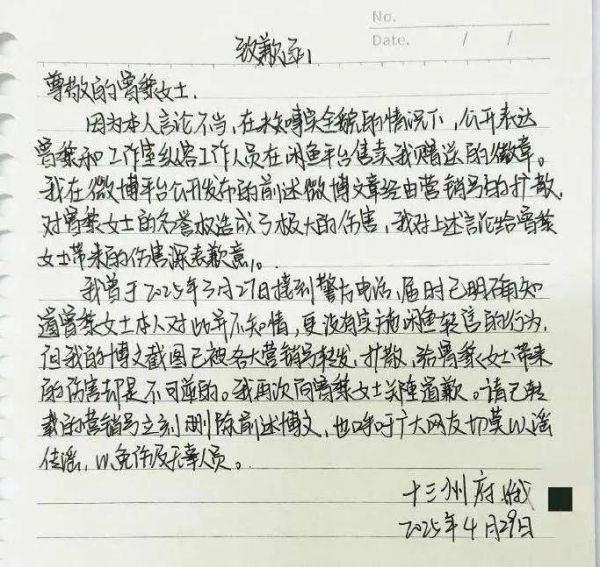 No.
Date. / /
致歉函
尊敬的曾黎女士：
因为本人言论不当，在未核实全貌的情况下，公开表达
曾黎和工作室纵容工作人员在闲鱼平台售卖我赠送的徽章。
我在微博平台公开发布的前述微博文章经由营销号的扩散，
对曾黎女士的名誉权造成了极大的伤害，我对上述言论给曾黎
女士带来的伤害深表歉意。
我曾于2025年3月27日接到警方电话，届时已明确知
道曾黎女士本人对此并不知情，更没有实施闲鱼转售的行为，
但我的博文截图已被各大营销号转发、扩散，给曾黎女士带来
的伤害却是不可逆的。我再次向曾黎女士关隆道歉。请已转
载的营销号立刻删除前述博文，也呼吁广大网友切莫以谣
传谣，以免涉及无辜人员。
十三州府
2025年4月29日